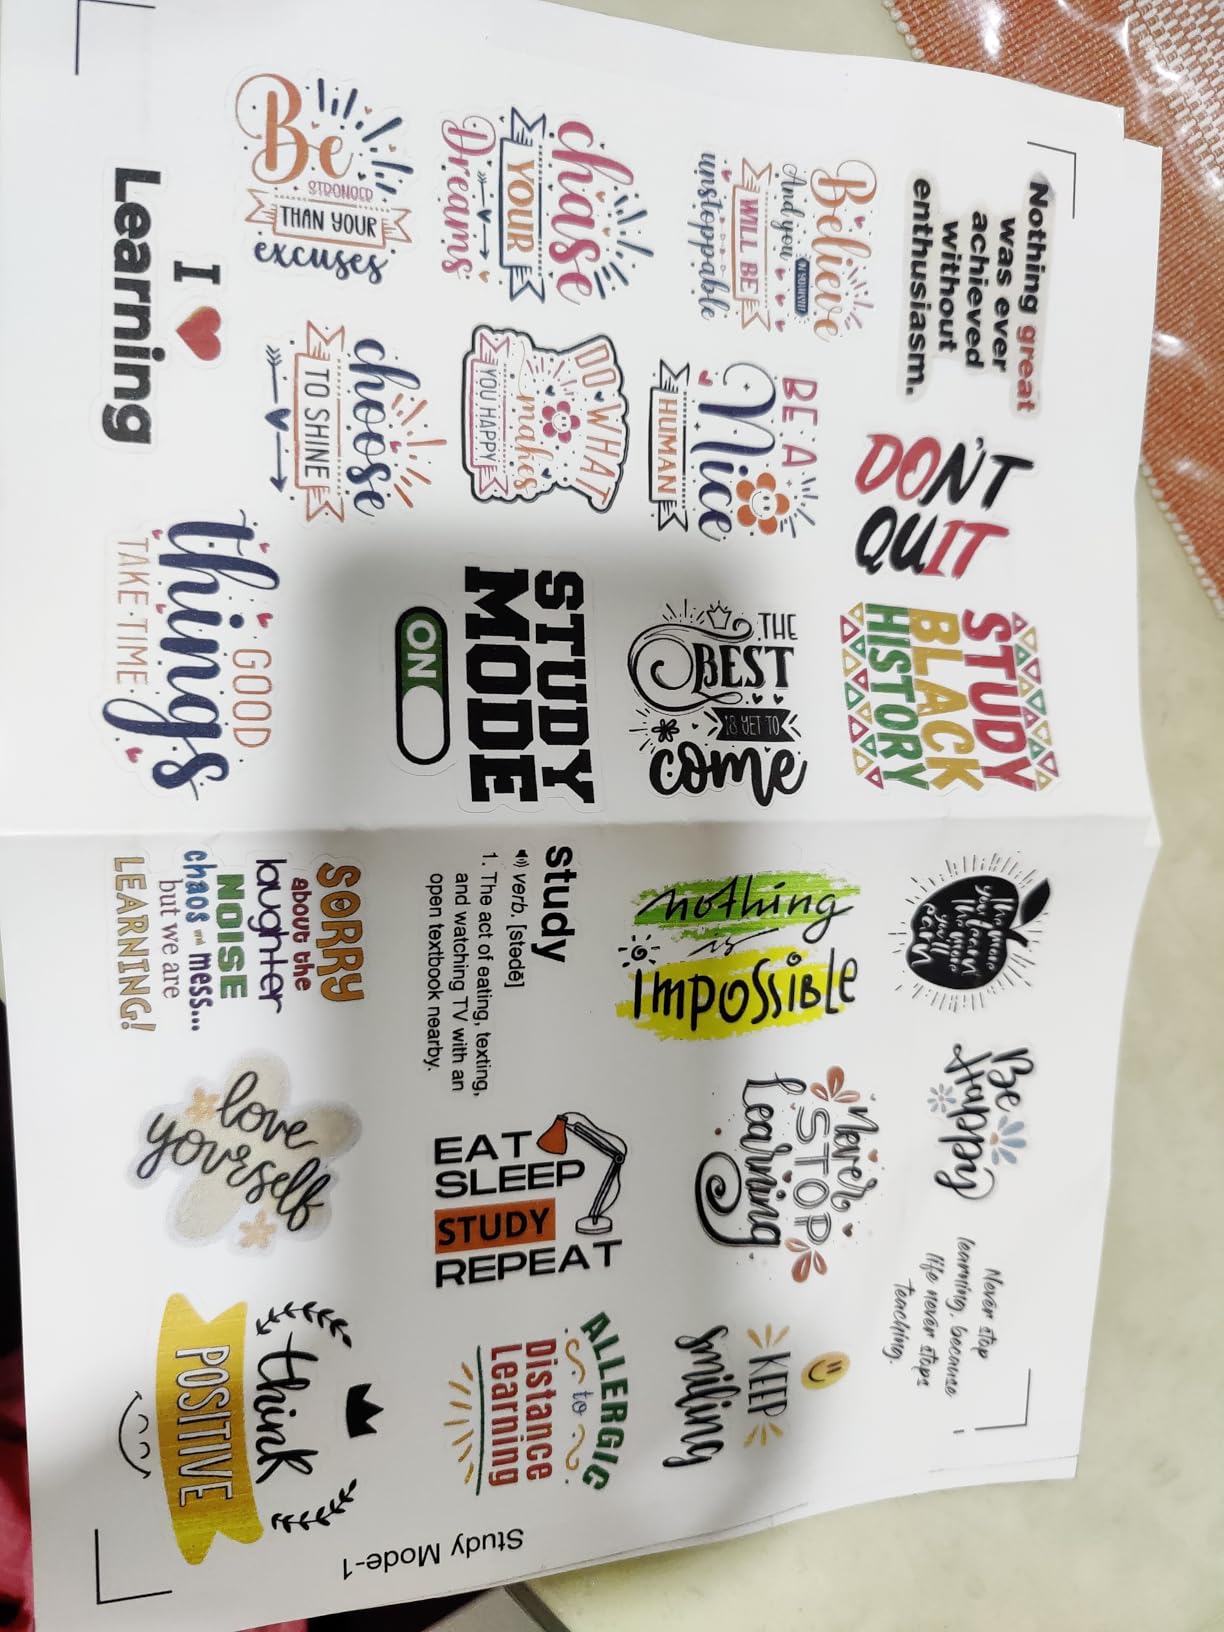 Nothing great
was ever
achieved
without
enthusiasm.
DON'T
QUIT
STUDY
BLACK
HISTORY
The more
you learn
the more
you'll
earn
Be
Happy
Never stop
learning, because
life never stops
teaching.
Believe
And you
WILL BE
unstoppable
BE A
Nice
HUMAN
THE
BEST
IS YET TO
come
nothing
is
IMPOSSIBLE
Never
STOP
Learning
KEEP
smiling
chase
YOUR
Dreams
DO WHAT
makes
YOU HAPPY
STUDY
MODE
ON
study
verb. [stədē]
1. The act of eating, texting,
and watching TV with an
open textbook nearby.
EAT
SLEEP
STUDY
REPEAT
ALLERGIC
to
Distance
Learning
Be
STRONGER
THAN YOUR
excuses
choose
TO SHINE
I
Learning
GOOD
things
TAKE TIME
SORRY
about the
laughter
NOISE
chaos and mess...
but we are
LEARNING!
love
yourself
think
POSITIVE
Study Mode-1